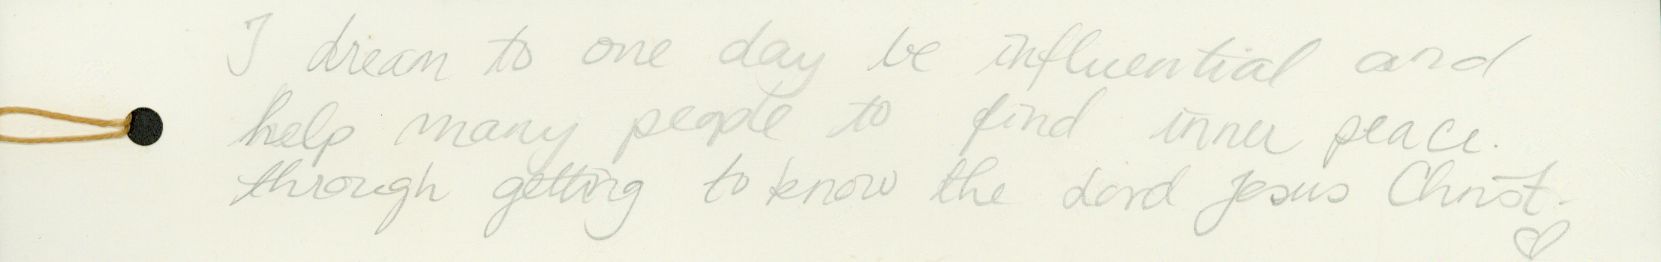 I dream to one day be influential and
help many people to find inner peace.
through getting to know the Lord Jesus Christ.
♡